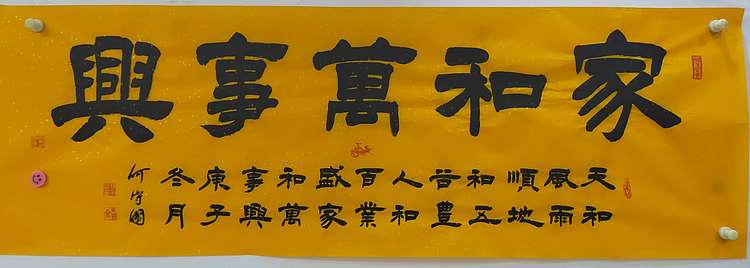 家和萬事興
天和
風雨
順地
和五
谷豊
人和
百業
盛家
和萬
事興
庚子
冬月